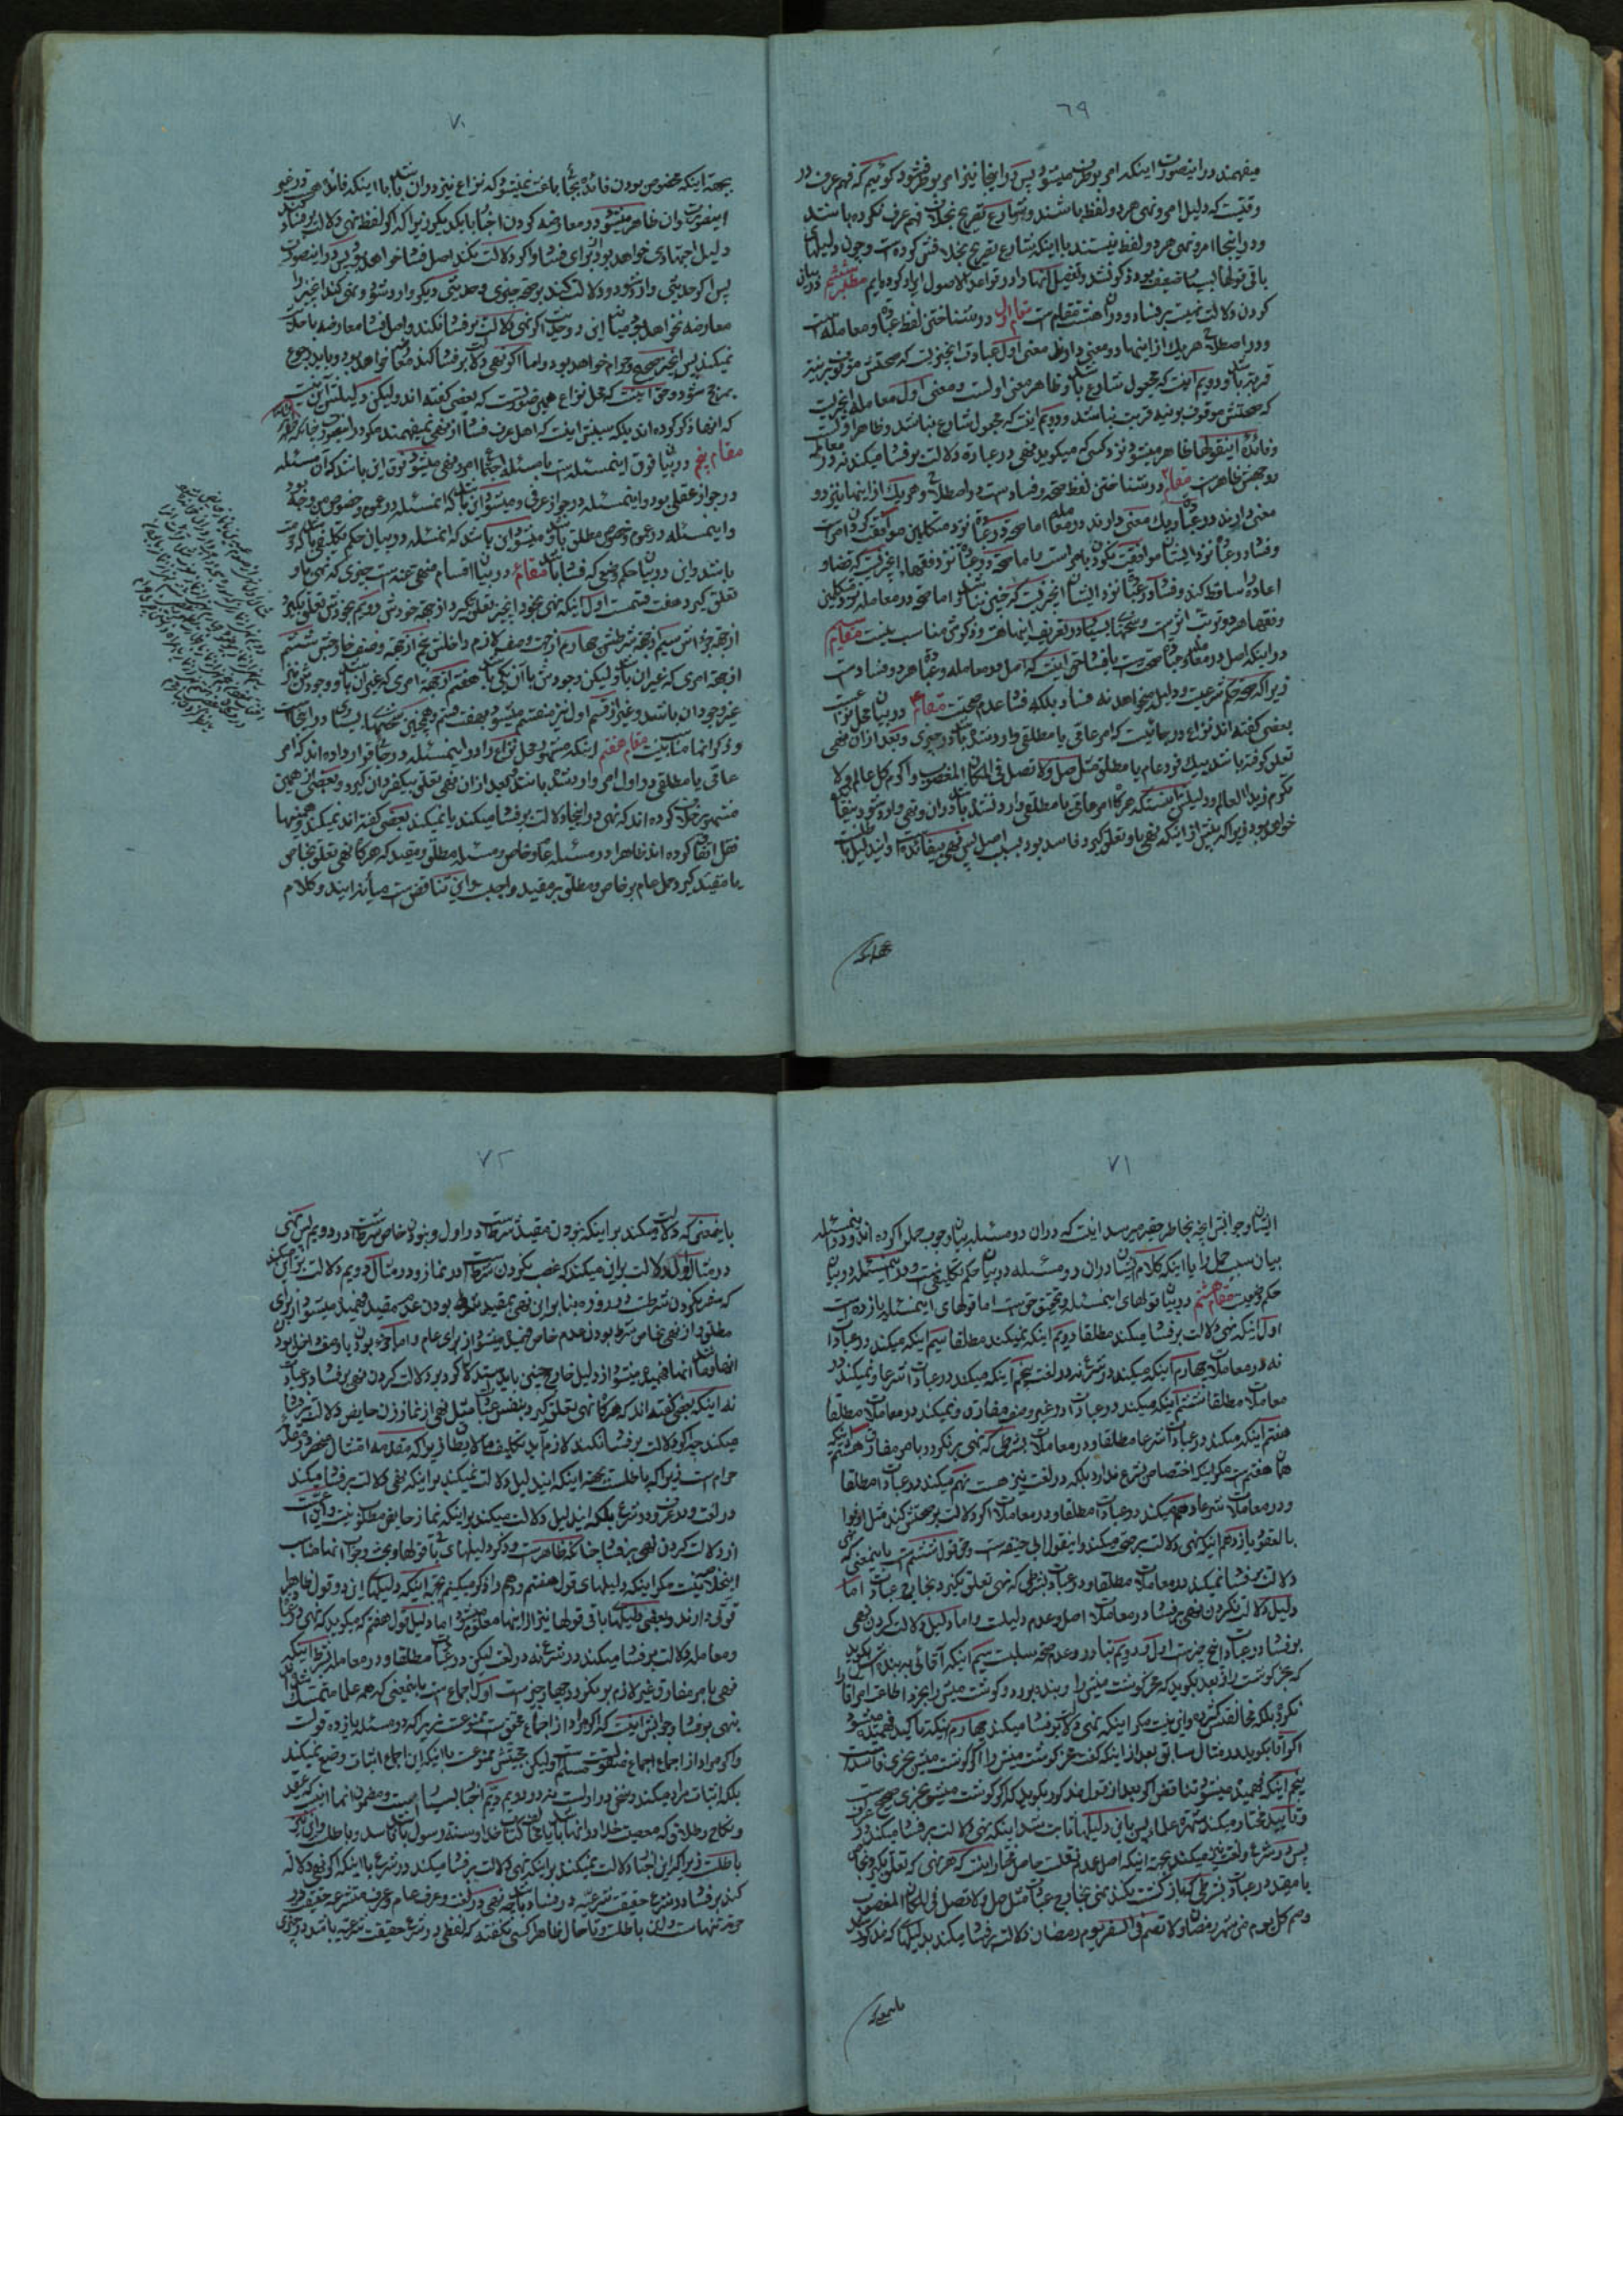 ٦٩
میفهمند در اینصورت اینکه امر بوطرف میشود پس در اینجا نیز امر بوطرف شود گوئیم که فهم عرف در
وقتیست که دلیل امر و نهی هر دو لفظ باشند و شارع تصریح بخلاف فهم عرف نکرده باشد
و در اینجا امر و نهی هر دو لفظ نیستند با اینکه شارع تصریح بخلافش کرده است و چون دلیلهای
باقی قولها بسیار ضعیف بود ذکر نشد و تفصیل آنها را در قواعد الاصول ایراد کرده‌ایم مطلب ششم در بیان
کردن دلالت نهیست بر فساد و در آن هشت مقام است مقام اول در شناختن لفظ عبادة و معامله است
و در اصطلاح هر یک از اینها دو معنی دارند معنی اول عبادت انچیزیست که صحتش موقوف بر نیت
قربة باشد و دویم اینست که مجعول شارع باشد و ظاهر معنی اولست و معنی اول معامله انچیزیست
که صحتش موقوف بر نیة قربت نباشد و دویم انست که مجعول شارع نباشد و ظاهر اولست
و فائده اینقولها ظاهر میشود نزد کسی که میگوید نهی در عبادة دلالت بر فساد میکند نه در معامله
و وجهش ظاهر است مقام ۲ در شناختن لفظ صحة و فساد است در اصطلاح و هر یک از اینها نیز دو
معنی دارند در عبادة و یک معنی دارند در معامله اما صحة در عبادة نزد متکلمین موافقت کردن امر است
و فساد در عبادة نزد ایشان موافقت نکردن با امر است و اما صحة در عبادة نزد فقهاء انچیزیست که قضا و
اعاده را ساقط کند و فساد در عبادة نزد ایشان انچیزیست که چنین نباشد و اما صحة در معامله نزد متکلمین
و فقهاء هر دو ترتب اثر است و بحثهای بسیار در تعریف اینها هست و ذکرش مناسب نیست مقام ۳
در اینکه اصل در معامله و عبادة صحت است یا فساد حق اینست که اصل در معامله و عبادة هر دو فساد است
زیرا که صحة حکم شرعیست و دلیل میخواهد نه فساد بلکه فساد عدم صحت است مقام ۴ در بیان محل نزاع است
بعضی گفته اند نزاع در جائیست که امر عامی یا مطلقی وارد شده باشد در چیزی و بعد از آن نهی
تعلق گرفته باشد بیک فرد عام یا مطلق مثل صل و لا تصل فی المکان المغصوب و اکرم کل عالم و لا
تکرم زیدا العالم و دلیلش اینستکه هرگاه امر عامی یا مطلقی وارد نشده باشد در آن و نهی وارد شود بیفائده
خواهد بود زیرا که پیش از اینکه نهی باو تعلق گیرد فاسد بود بسبب اصل پس نهی بیفائده است و ایندلیل باطلست
بجهة اینکه
٧٠
بجهة اینکه مخصوص بودن فائده بخبا باعث نمیشود که نزاع نیز در آن باشد با اینکه فائده هست در غیر
اینصورت و آن ظاهر میشود در معارضه کردن اخبار با یکدیگر زیرا که اگر لفظ نهی دلالت بر فساد کند
دلیل اجتهادی خواهد بود از برای فساد و اگر دلالت نکند اصل فساد خواهد بود پس در اینصورت
پس اگر حدیثی وارد شود و دلالت کند بر صحة چیزی و حدیثی دیگر وارد شود و نهی کند انچیز را
معارضه نخواهد بود میان این دو حدیث اگر نهی دلالت بر فساد نکند و اصل فساد معارضه با حدیث
نمیکند پس انچیز صحیح و حرام خواهد بود و اما اگر نهی دلالت بر فساد کند معارضه خواهد بود و باید رجوع
بمرجح شود و حق اینست که محل نزاع همین صورتست که بعضی گفته اند و لیکن دلیلش این نیست
که اینها ذکر کرده اند بلکه سببش اینست که اهل عرف فساد را از نهی نمیفهمند مگر در اینصورت چنانکه ظاهر
مقام پنجم در بیان فرق اینمسئله است با مسئله اجتماع امر و نهی میشود فرق این باشد که آن مسئله
در جواز عقلی بود و اینمسئله در جواز عرفی و میشود این باشد که آنمسئله در عموم و خصوص من وجه بود
و اینمسئله در عموم و خصوص مطلق باشد و میشود این باشد که انمسئله در بیان حکم تکلیفی باشد که حرمت
باشد و این در بیان حکم وضعی که فساد باشد مقام ۶ در بیان اقسام منهی عنه است چیزی که نهی باو
تعلق گیرد هفت قسمت اول اینکه نهی بخود انچیز تعلق گیرد از جهة خودش دویم بخودش تعلق گیرد
از جهة جزءاش سیم از جهة شرطش چهارم از جهت وصف لازم داخلش پنجم از جهة وصف خارجش ششم
از جهة امری که غیر آن باشد و لیکن وجودش با آن یکی باشد هفتم از جهة امری که غیر آن باشد و وجودش نیز
غیر وجود آن باشد و غیر از قسم اول نیز منقسم میشود بهفت قسم و همچنین بحثهای بسیاری در اینجا است
و ذکر انها مناسب نیست مقام هفتم اینکه مشهور محل نزاع را در اینمسئله در جائی قرار داده اند که امر
عامی یا مطلقی در اول امر وارد شده باشد و بعد از آن نهی تعلق بیکفرد آن گیرد و بعضی از همین
مشهور خلاف کرده اند که نهی در اینجا دلالت بر فساد میکند یا نمیکند بعضی گفته اند نمیکند و همینها
نقل اتفاق کرده اند ظاهرا در مسئله عام و خاص و مسئله مطلق و مقید که هرگاه نهی تعلق بخاص
یا مقید گیرد حمل عام بر خاص و مطلق بر مقید واجب است و این تناقض است میانه ایندو کلام
٧١
ایشان و جوابش انچه بخاطر حقیر میرسد اینست که در آن دو مسئله بیان وجوب حمل را کرده اند و در اینمسئله
بیان سبب حمل را یا اینکه کلام ایشان در آن دو مسئله در بیان حکم تکلیفیست و در اینمسئله در بیان
حکم وضعیست مقام هشتم در بیان قولهای اینمسئله و تحقیق حق است اما قولهای اینمسئله یازده است
اول اینکه نهی دلالت بر فساد میکند مطلقا دویم اینکه نمیکند مطلقا سیم اینکه میکند در عبادات
نه در معاملات چهارم اینکه میکند در شرع نه در لغت پنجم اینکه میکند در عبادات شرعا و نمیکند در
معاملات مطلقا ششم اینکه میکند در عبادات در غیر وصف مفارق و نمیکند در معاملات مطلقا
هفتم اینکه میکند در عبادات شرعا مطلقا و در معاملات بشرطی که نهی بر نگردد بامر مفارق هشتم اینکه
همان هفتم است مگر اینکه اختصاص بشرع ندارد بلکه در لغت نیز هست نهم میکند در عبادات مطلقا
و در معاملات شرعا دهم میکند در عبادات مطلقا و در معاملات اگر دلالت بر صحتش نکند مثل اوفوا
بالعقود یازدهم اینکه نهی دلالت بر صحة میکند و اینقول ابی حنیفه است و حق قول ششم است باینمعنی که نهی
دلالت بر فساد نمیکند در معاملات مطلقا و در عبادات بشرطی که نهی تعلق نگیرد بخارج عبادات اما
دلیل دلالت نکردن نهی بر فساد در معاملات اصل و عدم دلیلست و اما دلیل دلالت کردن نهی
بر فساد در عبادات پنج چیز است اول دویم تبادر و عدم صحة سلبست سیم اینکه آقائی به بنده‌اش بگوید
که بخر گوشت را و بعد بگوید که مخر گوشت میش را و بنده برود و گوشت میش را بخرد اطاعت امر آقا را
نکرده بلکه مخالفتش کرده و این نیست مگر اینکه نهی دلالت بر فساد میکند چهارم اینکه تاکید فهمیده میشود
اگر آقا بگوید در مثال سابق بعد از اینکه گفت مخر گوشت میش را اگر گوشت میش بخری فاسد است
پنجم اینکه فهمیده میشود تناقض اگر بعد از قول مذکور بگوید که اگر گوشت میش بخری صحیح است
و تایید مختار میکند شهرة علماء پس باین دلیلها ثابت شد اینکه نهی دلالت بر فساد میکند در عرف
پس در شرع و لغت نیز میکند بجهة اینکه اصل عدم نقلست حاصل مختار اینست که هر نهی که تعلق گیرد بخاص
یا مقید در عبادات بشرطی که بازگشت نکند نهی بخارج عبادات مثل صل و لا تصل فی المکان المغصوب
و صم کل یوم من شهر رمضان و لا تصم فی السفر یوم رمضان دلالت بر فساد میکند بدلیلها که مذکور شد
باینمعنی که
٧٢
باینمعنی که دلالت میکند بر اینکه نبودن مقید شرط است در اول و نبودن خاص شرط است در دویم پس نهی
در مثال اول دلالت بر این میکند که غصب نکردن شرط است در نماز و در مثال دویم دلالت بر این میکند
که سفر نکردن شرط است در روزه بنابر این نهی بمقید شرط بودن عدم مقید فهمیده میشود از برای
مطلق و از نهی بخاص شرط بودن عدم خاص فهمیده میشود از برای عام و اما جزء بودن یا وصف داخل بودن
انها فهمیده میشود از دلیل خارج چنین باید استدلال کرد بر دلالت کردن نهی بر فساد در عبادات
نه اینکه بعضی گفته اند که هرگاه نهی تعلق گیرد بنفس عبادات مثل نهی از نماز زن حایض دلالت بر فساد
میکند چه اگر دلالت بر فساد نکند لازم آید تکلیف ما لا یطاق زیرا که مقدمه امتثال منحصر در فعل
حرام است زیرا که باطلست بجهة اینکه ایندلیل دلالت نمیکند بر اینکه نهی دلالت بر فساد میکند
در لغت و در عرف و در شرع بلکه ایندلیل دلالت میکند بر اینکه نماز حایض مطلوب نیست و این اعم است
از دلالت کردن نهی بر فساد چنانکه ظاهر است و ذکر دلیلهای باقی قولها و بحث و جواب انها مناسب
اینمختصر نیست مگر اینکه دلیلهای قول هفتم و دهم را ذکر میکنیم بجهة اینکه دلیلهای این دو قول ظاهرا
قوتی دارند و بعضی دلیلهای باقی قولها نیز از اینها معلوم میشود اما دلیل قول هفتم که میگوید که نهی در عبادات
و معامله دلالت بر فساد میکند در شرع نه در لغت لیکن در عبادات مطلقا و در معامله بشرط اینکه
نهی بامر مفارق غیر لازم بر نگردد چهار چیز است اول اجماع است باینمعنی که همه علما متمسک شده اند
بنهی بر فساد و جوابش اینست که اگر مراد از اجماع محقق است ممنوعست زیرا که در مسئله یازده قولست
و اگر مراد از اجماع اجماع منقولست مسلم است و لیکن حجیتش ممنوعست با اینکه این اجماع اثبات وضع نمیکند
بلکه اثبات مراد میکند و سخن در اولست نه در دویم دویم اخبار بسیار است و مضمون انها اینست که عقد
و نکاح و طلاق که معصیت خدا در انها باشد یا مخالف کتاب خدا و سنة رسول باشد فاسد و باطلست و این نیز
باطلست زیرا که این اخبار دلالت نمیکند بر اینکه نهی دلالت بر فساد میکند در شرع با اینکه اگر نهی دلالة
کند بر فساد در شرع حقیقت شرعیه در فساد باشد چه نهی در لغت و عرف عام و عرف متشرعه حقیقت در
حرمة تنهاست و این باطلست و تا حال ظاهرا کسی نگفته که لفظی در شرع حقیقت شرعیه باشد در چیزی